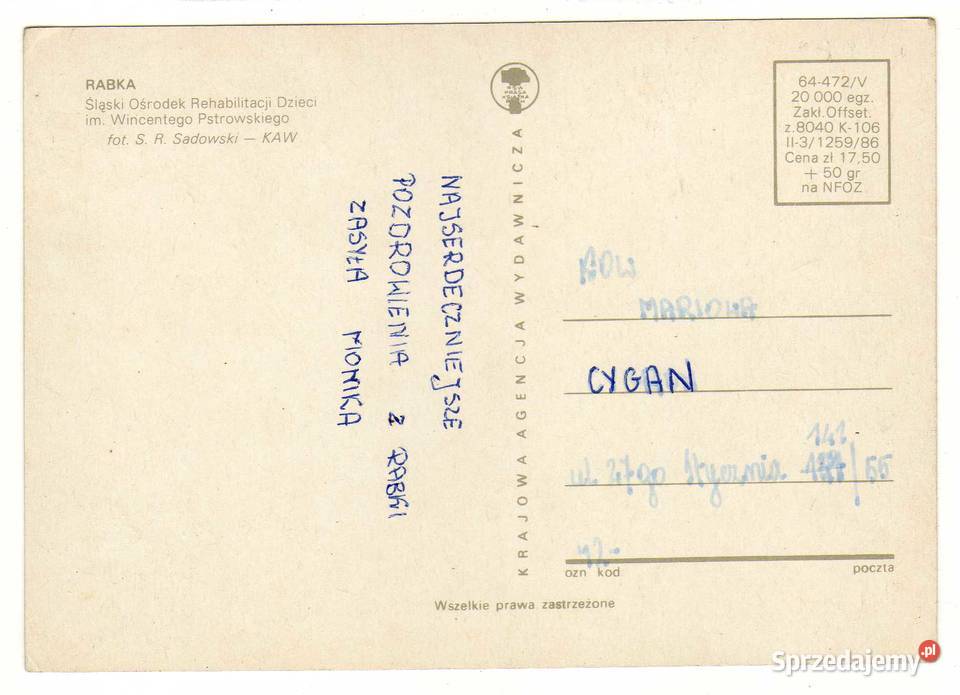 RABKA
Śląski Ośrodek Rehabilitacji Dzieci
im. Wincentego Pstrowskiego
fot. S. R. Sadowski — KAW
RSW
PRASA
KSIĄŻKA
RUCH
64-472/V
20 000 egz.
Zakł.Offset.
z.8040 K-106
II-3/1259/86
Cena zł 17,50
+ 50 gr
na NFOZ
KRAJOWA AGENCJA WYDAWNICZA
NAJSERDECZNIEJSZE
POZDROWIENIA z RABKI
ZASYŁA MONIKA
CYGAN
ul 27go Stycznia 141 /55
42-
ozn kod
poczta
Wszelkie prawa zastrzeżone
Sprzedajemy.pl